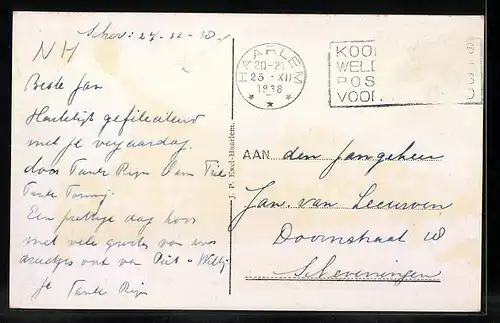 NH
Beste Jan
Hartelijk gefeliciteerd
met je verjaardag
door Tante Rijn
Tante Tonny.
Een prettige dag hoor
met vele groeten van ons
van Piet - Willy
je Tante Rijn
J. P. Exel-Haarlem.
HAARLEM
20-21
25 XII
1938
KOO
WEL
POS
VOO
AAN den Jongeheer
Jan. van Leeuwen
Doornstraat 18
Scheveningen